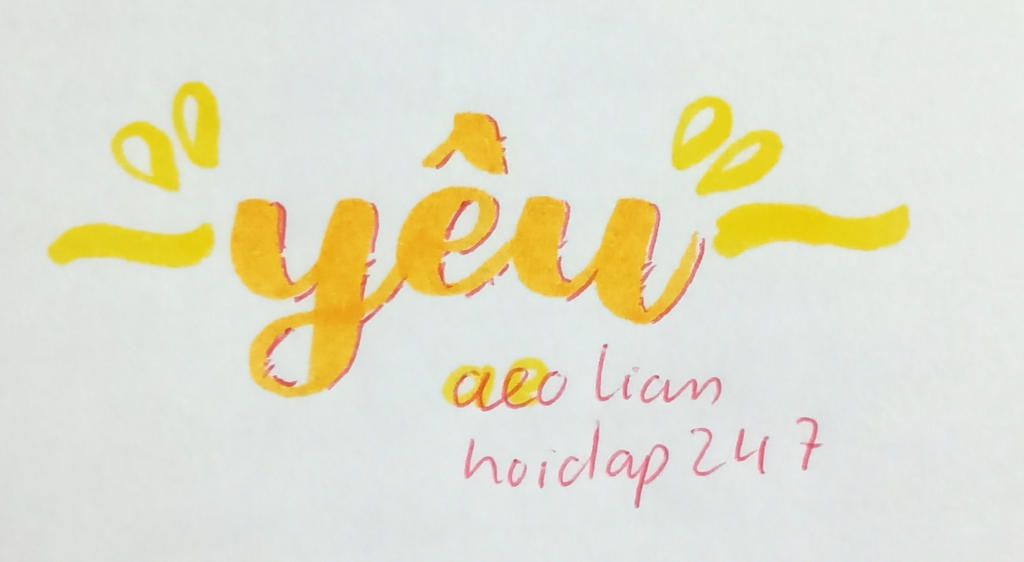 yêu
aeo lian
hoidap247